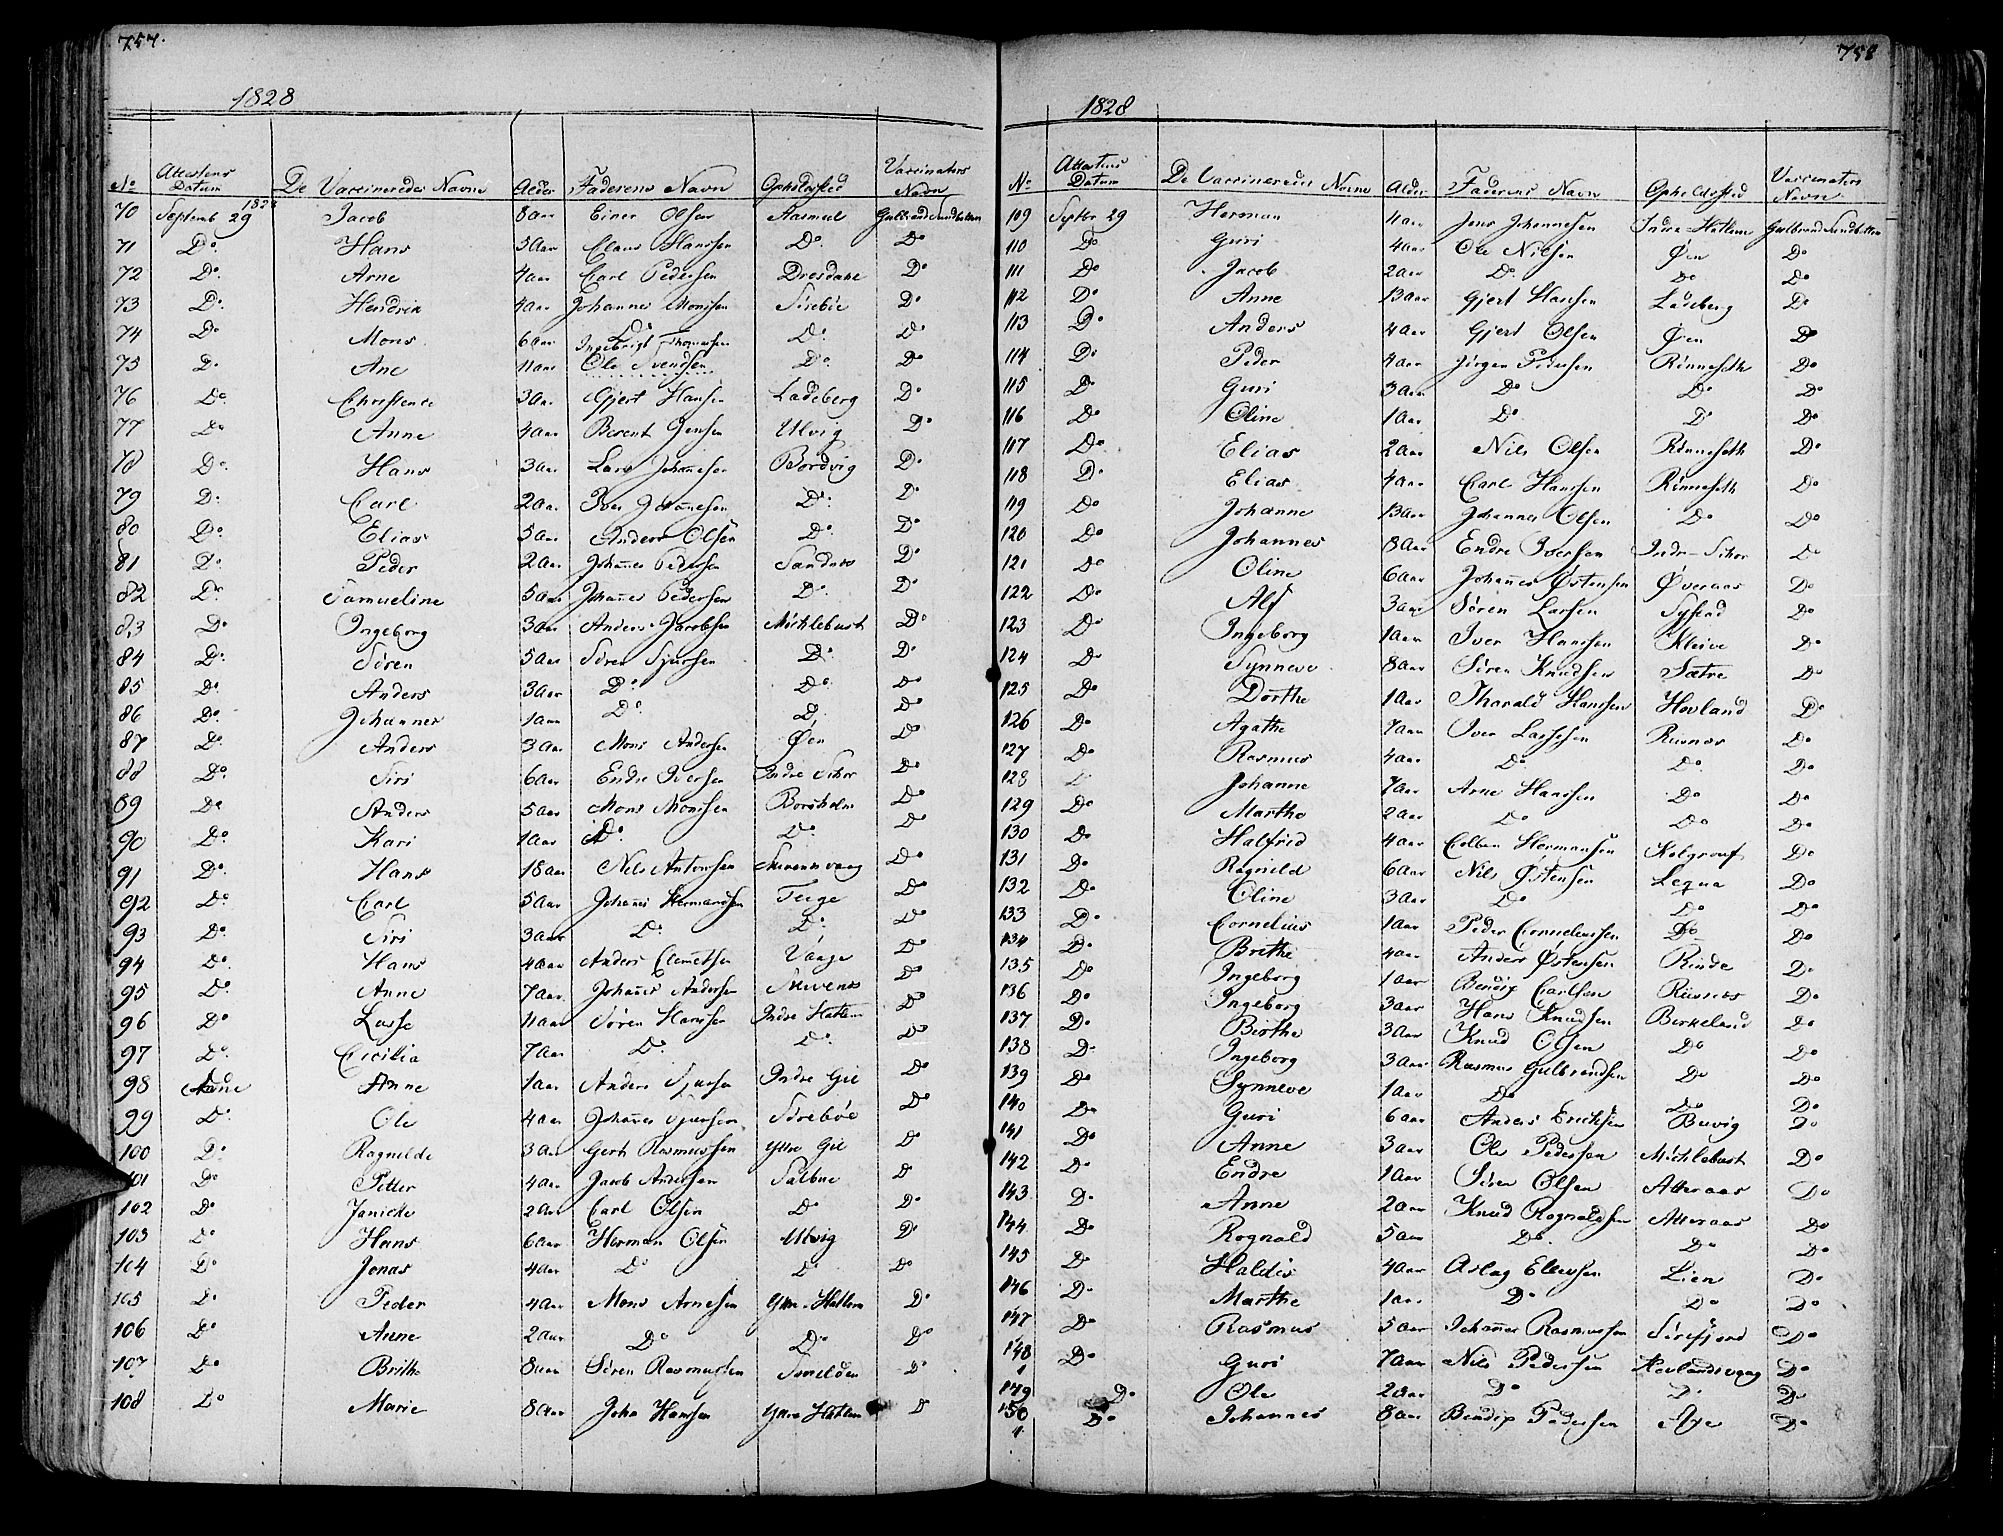 757.
1828
No Attestens Datum De Vaccineredes Navne Alder Faderens Navn Opholdsted Vaccinators Navn
70 Septemb 29 1828 Jacob 8 Aar Einer Olsen Aarmul Gulbrand Sandbotten
71 Do Hans 3 Aar Claus Hanssen Do Do
72 Do Arne 4 Aar Carl Pedersen Do
73 Do Hendrik 4 Aar Johannes Monssen Söreböe Do
74 Do Mons 6 Aar Do Ingebrigt Thomassen Do Do
75 Do Ane 11 Aar Ole Svendsen Do Do
76 Do Christence 3 Aar Gjert Hansen Ladeberg Do
77 Do Anne 4 Aar Berent Jensen Ulvig Do
78 Do Hans 3 Aar Lars Johannesen Bordvig Do
79 Do Carl 2 Aar Iver Johannesen Do Do
80 Do Elias 5 Aar Anders Olsen Do Do
81 Do Peder 2 Aar Johannes Pedersen Sandnes Do
82 Do Samueline 5 Aar Johannes Pedersen Do Do
83 Do Ingeborg 3 Aar Anders Jacobsen Micklebust Do
84 Do Sören 5 Aar Sören Sjursen Do Do
85 Do Anders 3 Aar Do Do Do
86 Do Johannes 1 Aar Do Do Do
87 Do Anders 3 Aar Mons Andersen Øen Do
88 Do Siri 6 Aar Endre Iversen Indre Skor Do
89 Do Anders 5 Aar Mons Monssen Borsholm Do
90 Do Kari 1 Aar Do Do Do
91 Do Hans 18 Aar Nils Antonsen Do
92 Do Carl 5 Aar Johannes Hermandsen Teige Do
93 Do Siri 3 Aar Do Do Do
94 Do Hans 4 Aar Anders Clemetsen Vaage Do
95 Do Anne 7 Aar Johannes Andersen Do
96 Do Lasse 11 Aar Sören Hanssen Indre Hatlem Do
97 Do Cicilia 7 Aar Do Do Do
98 Anne 1 Aar Anders Sjursen Indre Gil Do
99 Do Ole 4 Aar Johannes Sjursen Söreböe Do
100 Do Ragnilde 3 Aar Gert Rasmussen Yttre Gil Do
101 Do Petter 4 Aar Jacob Andersen Salbue Do
102 Do Janicke 2 Aar Carl Olsen Do Do
103 Do Hans 6 Aar Herman Olsen Ulvig Do
104 Do Jonas 4 Aar Do Do Do
105 Do Peder 4 Aar Mons Arnesen Yttre Hatlem Do
106 Do Anne 2 Aar Do Do Do
107 Do Brithe 8 Aar Sören Rasmussen Do
108 Do Marie 8 Aar Joha Hanssen Yttre Hatlem Do
758
1828
No Attestens Datum De Vaccineredes Navne Alder Faderens Navn Opholdsted Vaccinators Navn
109 Septbr 29 Herman 4 Aar Jens Johannesen Indre Hatlem Gulbrand Sandbotten
110 Do Guri 4 Aar Ole Nilsen Øen Do
111 Do Jacob 2 Aar Do Do Do
112 Do Anne 13 Aar Gjert Hansen Ladeberg Do
113 Do Anders 4 Aar Gjert Olsen Øen Do
114 Do Peder 4 Aar Jörgen Pedersen Rönneseth Do
115 Do Guri 3 Aar Do Do Do
116 Do Oline 1 Aar Do Do Do
117 Do Elias 2 Aar Nils Olsen Rönneseth Do
118 Do Elias 4 Aar Carl Hanssen Rönneseth Do
119 Do Johanne 13 Aar Johannes Olsen Do Do
120 Do Johannes 8 Aar Endre Iversen Indre Skor Do
121 Do Oline 6 Aar Johannes Østensen Øveraas Do
122 Do Alf 3 Aar Sören Larsen Systad Do
123 Do Ingeborg 1 Aar Iver Hanssen Kleive Do
124 Do Synneve 8 Aar Sören Knudsen Sætre Do
125 Do Dorthe 1 Aar Tharald Hanssen Hovland Do
126 Do Agathe 7 Aar Iver Lassesen Risnes Do
127 Do Rasmus 4 Aar Do Do Do
128 D Johanne 7 Aar Arne Hanssen Do Do
129 Do Marthe 2 Aar Do Do Do
130 Do Halfrid 4 Aar Colben Hermansen Kolgrouf Do
131 Do Ragnild 6 Aar Nils Østensen Do
132 Do Oline 3 Aar Do Do Do
133 Do Cornelius 1 Aar Peder Corneliussen Do Do
134 Do Brithe 4 Aar Anders Østensen Rinde Do
135 Do Ingeborg 1 Aar Bendix Carlsen Risnes Do
136 Do Ingeborg 3 Aar Hans Knudsen Birkeland Do
137 Do Birthe 3 Aar Knud Olsen Do Do
138 Do Ingeborg 3 Aar Rasmus Gulbrandsen Do Do
139 Do Synneve 1 Aar Do Do Do
140 Do Guri 6 Aar Anders Ericksen Do
141 Do Anne 3 Aar Ole Pedersen Micklebust Do
142 Do Endre 1 Aar Sören Olsen Atteraas Do
143 Do Anne 2 Aar Knud Rognaldsen Atteraas Do
144 Do Rognald 5 Aar Do Do Do
145 Do Haldis 4 Aar Aslag Ellensen Lien Do
146 Do Marthe 1 Aar Do Do Do
147 Do Rasmus 5 Aar Johannes Rasmussen Sörefjord Do
148 Do Guri 7 Aar Nils Pedersen Hovlandsvaag Do
149 Do Ole 2 Aar Do Do Do
150 Do Johannes 8 Aar Bendix Pedersen Do